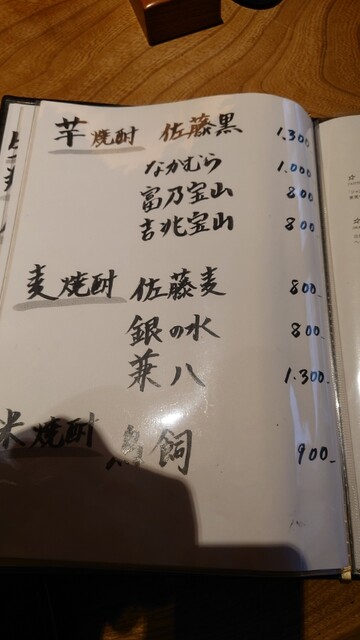 芋焼酎 佐藤黒 1,300
なかむら 1,000
富乃宝山 800
吉兆宝山 800
麦焼酎 佐藤麦 800
銀の水 800
兼八 1,300
米焼酎 鳥飼 900